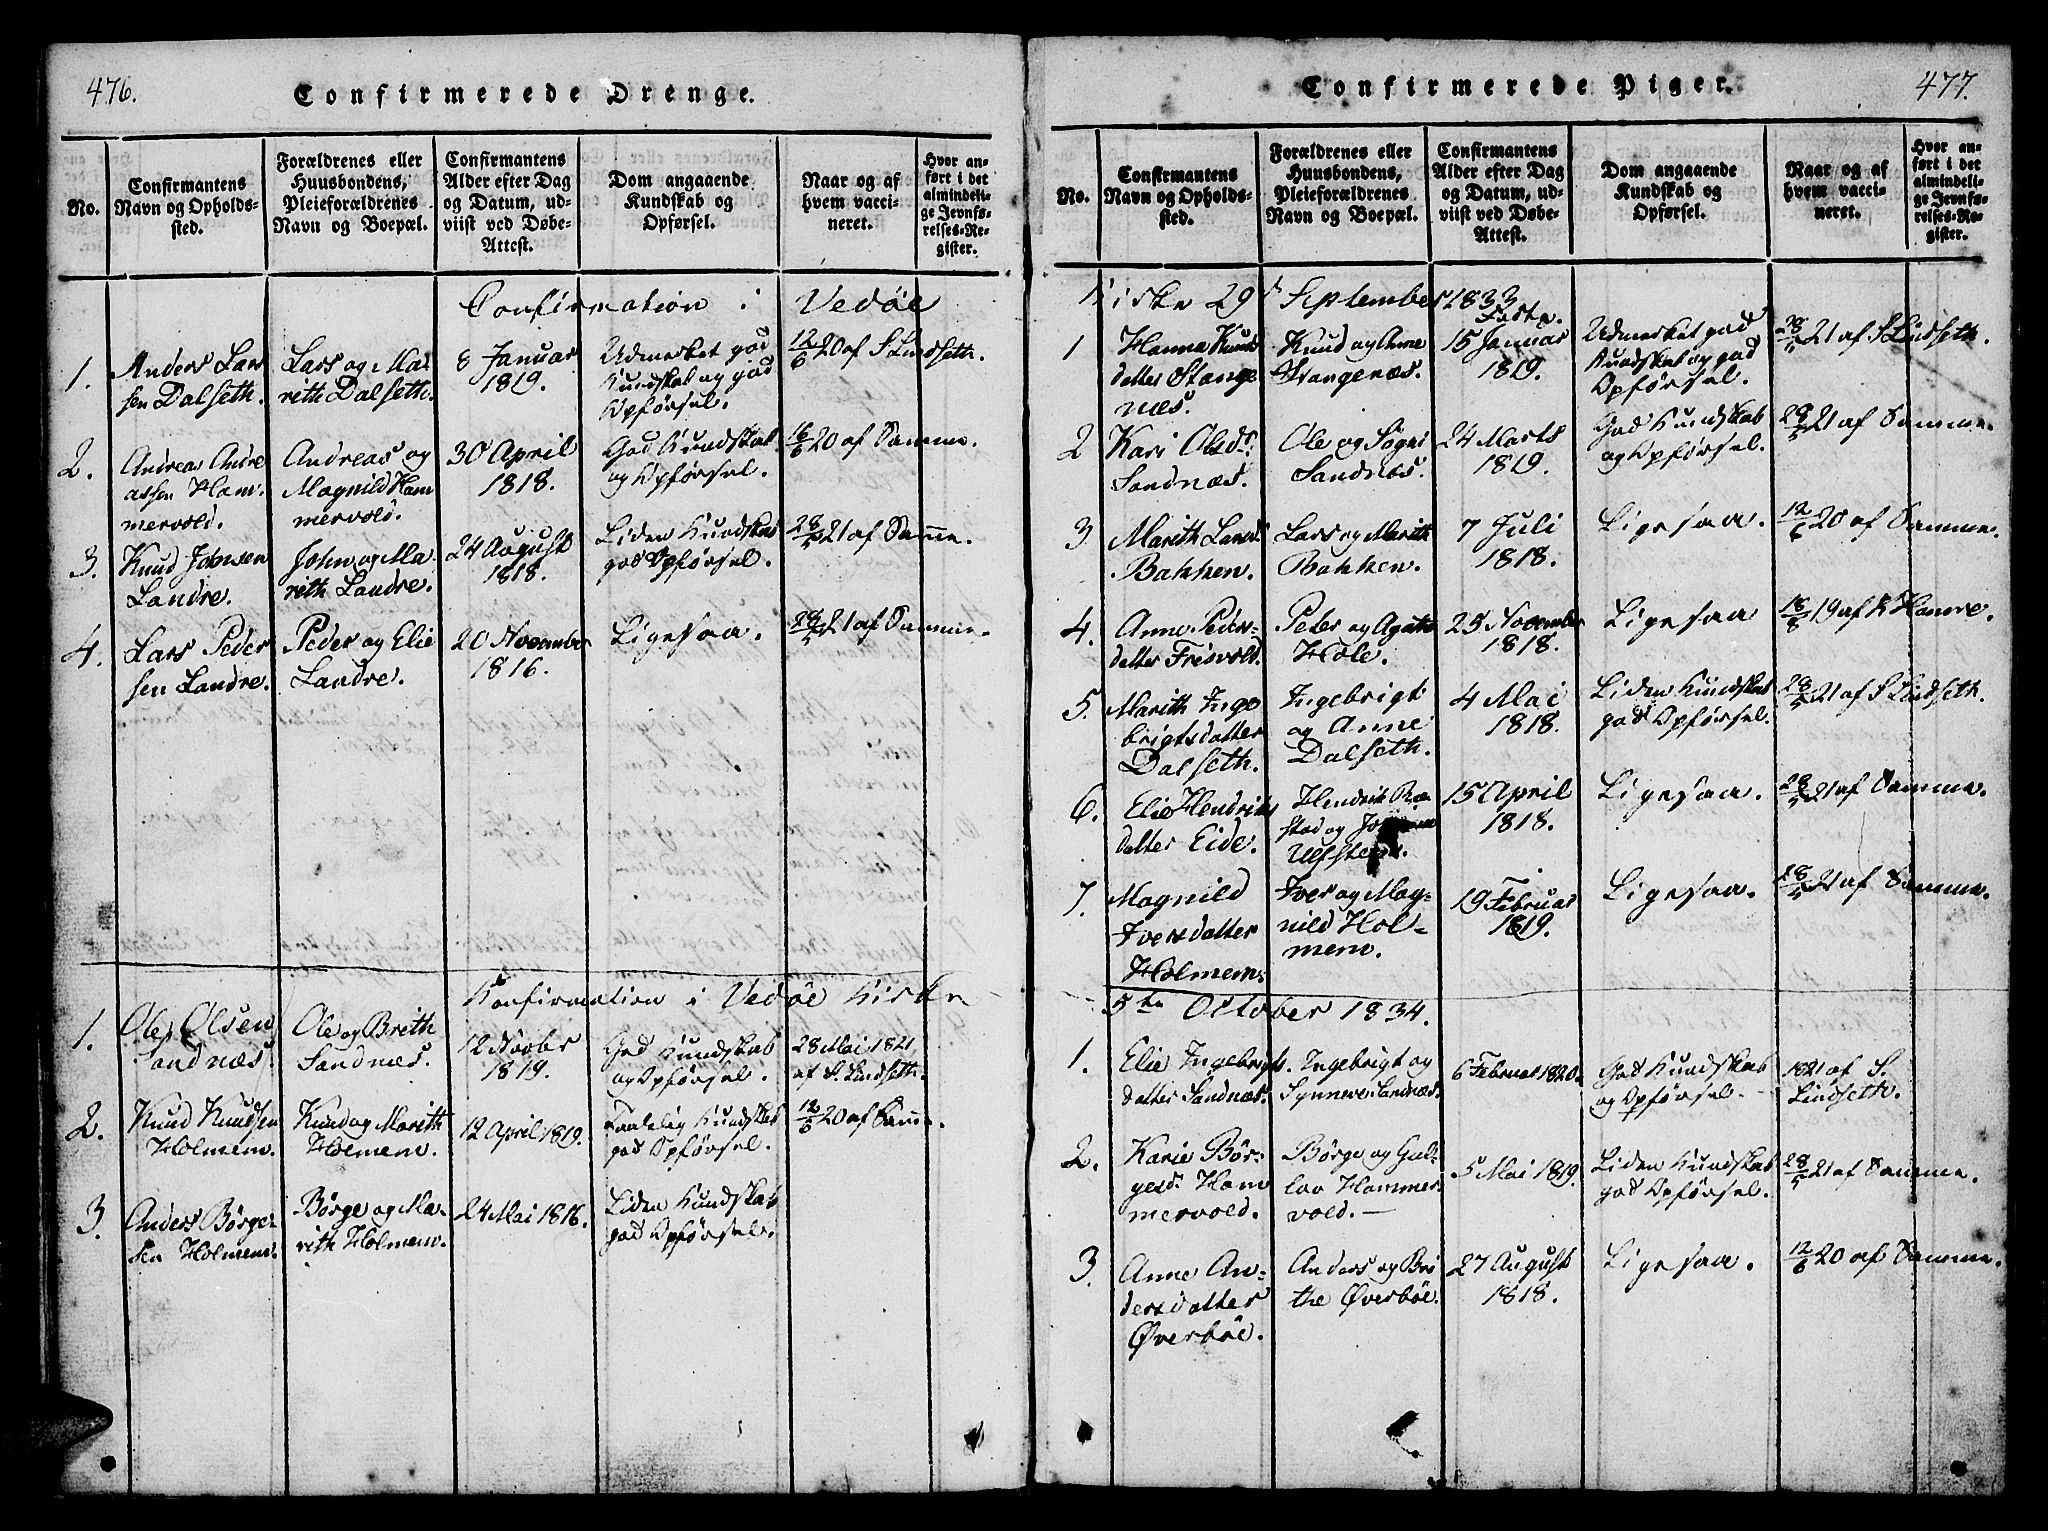 476.
Confirmerede Drenge.
No.
Confirmantens
Navn og Opholds-
sted.
Forældrenes eller
Huusbondens,
Pleieforældrenes
Navn og Boepæl.
Confirmantens
Alder efter Dag
og Datum, ud-
viist ved Døbe-
Attest.
Dom angaaende
Kundskab og
Opførsel.
Naar og af
hvem vacci-
neret.
Hvor an-
ført i det
almindeli-
ge Jevnfø-
relses-Re-
gister.
Confirmation i Vedöe
1.
Anders Lars
sen Dalseth.
Lars og Ma-
rith Dalseth.
8 Januar
1819.
Udmerket god
Kundskab og god
Opførsel.
12/6 20 af S Lindseth.
2.
Andreas Andre
assen Ham-
mervold.
Andreas og
Magnild Ham
mervold.
30 April
1818.
God Kundskab
og Opførsel.
16/6 20 af Samme.
3.
Knud Johnsen
Landre.
John og Ma
rith Landre.
24 August
1818.
Liden Kundskab
god Opførsel.
28/5 21 af Samme.
4.
Lars Peder
sen Landre.
Peder og Elie
Landre.
20 November
1816.
Ligesaa.
28/5 21 af Samme.
Konfirmation i Vedöe Kirke
1.
Ole Olsen
Sandnæs.
Ole og Brith
Sandnæs.
12 Novbr
1819.
God Kundskab
og Opførsel.
28 Mai 1821
af S. Lindseth.
2.
Knud Knudsen
Holmem.
Knud og Marith
Holmem.
12 April 1819.
Taalelig Kundskab
god Opførsel.
12/6 20 af Samme.
3.
Anders Börge-
sen Holmem.
Börge og Ma-
rith Holmem.
24 Mai 1816.
Liden Kundskab
god Opførsel.
477.
Confirmerede Piger.
No.
Confirmantens
Navn og Opholds-
sted.
Forældrenes eller
Huusbondens,
Pleieforældrenes
Navn og Boepæl.
Confirmantens
Alder efter Dag
og Datum, ud-
viist ved Døbe-
Attest.
Dom angaaende
Kundskab og
Opførsel.
Naar og af
hvem vacci-
neret.
Hvor an-
ført i det
almindeli-
ge Jevnfø-
relses-Re-
gister.
Kirke 29 September 1833
1
Hanna Knuds
datter Stange
næs.
Knud og Anne
Stangenæs.
15 Januar
1819.
Udmerket god
Kundskab og god
Opførsel.
28/5 21 af S Lindseth.
2
Kari Olsdr.
Sandnæs.
Ole og Sogni
Sandnæs.
24 Marts
1819.
God Kundskab
og Opførsel.
28/5 21 af Samme.
3
Marith Larsd.
Bakken.
Lars og Marith
Bakken.
7 Juli
1818.
Ligesaa.
12/6 20 af Samme.
4.
Anne Peders-
datter Frisvold.
Peter og Agathe
Hole.
25 November
1818.
Ligesaa
18/8 19 af K Hamre.
5.
Marith Inge
brigtsdatter
Dalseth.
Ingebrigt
og Anne
Dalseth.
4 Mai
1818.
Liden Kundskab
god Opførsel.
28/5 21 af S Lindseth.
6.
Elie Hendriks
datter Eide.
Hendrik Ræ
stad og
Ulfsten.
15 April
1818.
Ligesaa.
28/5 21 af Samme.
7.
Magnild
Iversdatter
Holmem.
Iver og Mag-
nild Hol-
mem.
19 Februar
1819.
Ligesaa.
28/5 21 af Samme.
5te October 1834.
1.
Elie Ingebrigts.
datter Sandnæs.
Ingebrigt og
Synneve Sandnæs.
6 Februar 1820.
God Kundskab
og Opførsel.
1821 af S.
Lindseth.
2.
Karie Bör-
gesd. Ham
mervold.
Börge og Gul-
lov Hammer-
vold.
5 Mai 1819.
Liden Kundskab
god Opførsel.
28/5 21 af Samme.
3.
Anne An-
dersdatter
Øverböe.
Anders og Bri
the Øverböe.
27 August
1818.
Ligesaa.
12/6 20 af Samme.